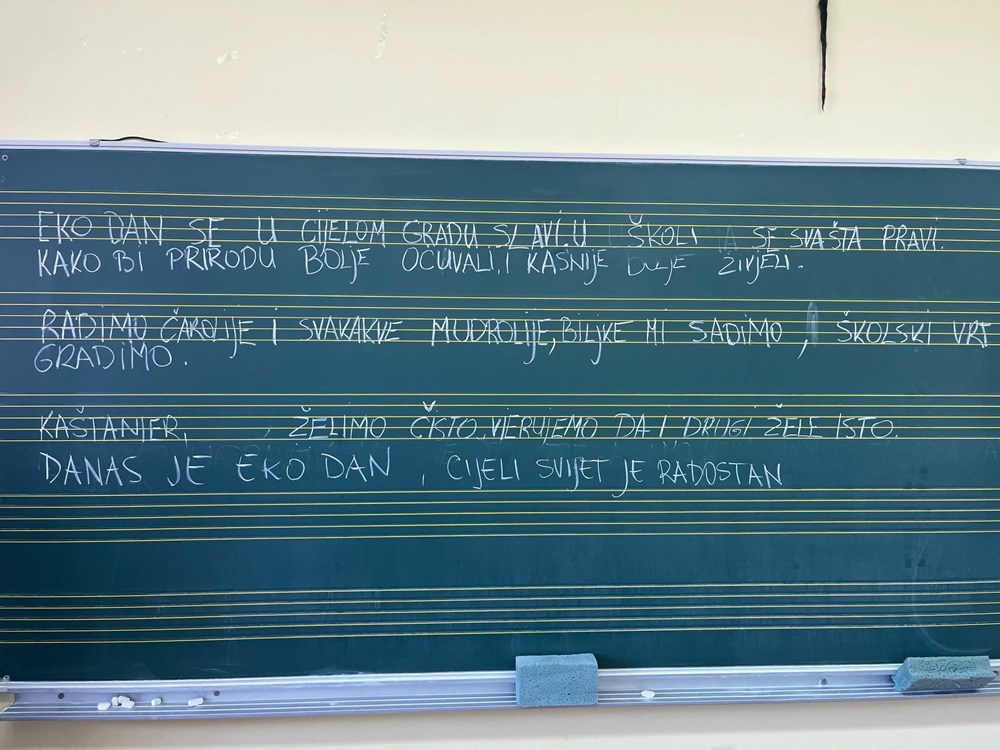 EKO DAN SE U CIJELOM GRADU SLAVI, U ŠKOLI SE SVAŠTA PRAVI.
KAKO BI PRIRODU BOLJE OČUVALI, I KASNIJE BOLJE ŽIVJELI.
RADIMO ČAROLIJE I SVAKAKVE MUDROLIJE, BILJKE MI SADIMO, ŠKOLSKI VRT
GRADIMO.
KAŠTANJER, ŽELIMO ČISTO, VJERUJEMO DA I DRUGI ŽELE ISTO.
DANAS JE EKO DAN, CIJELI SVIJET JE RADOSTAN